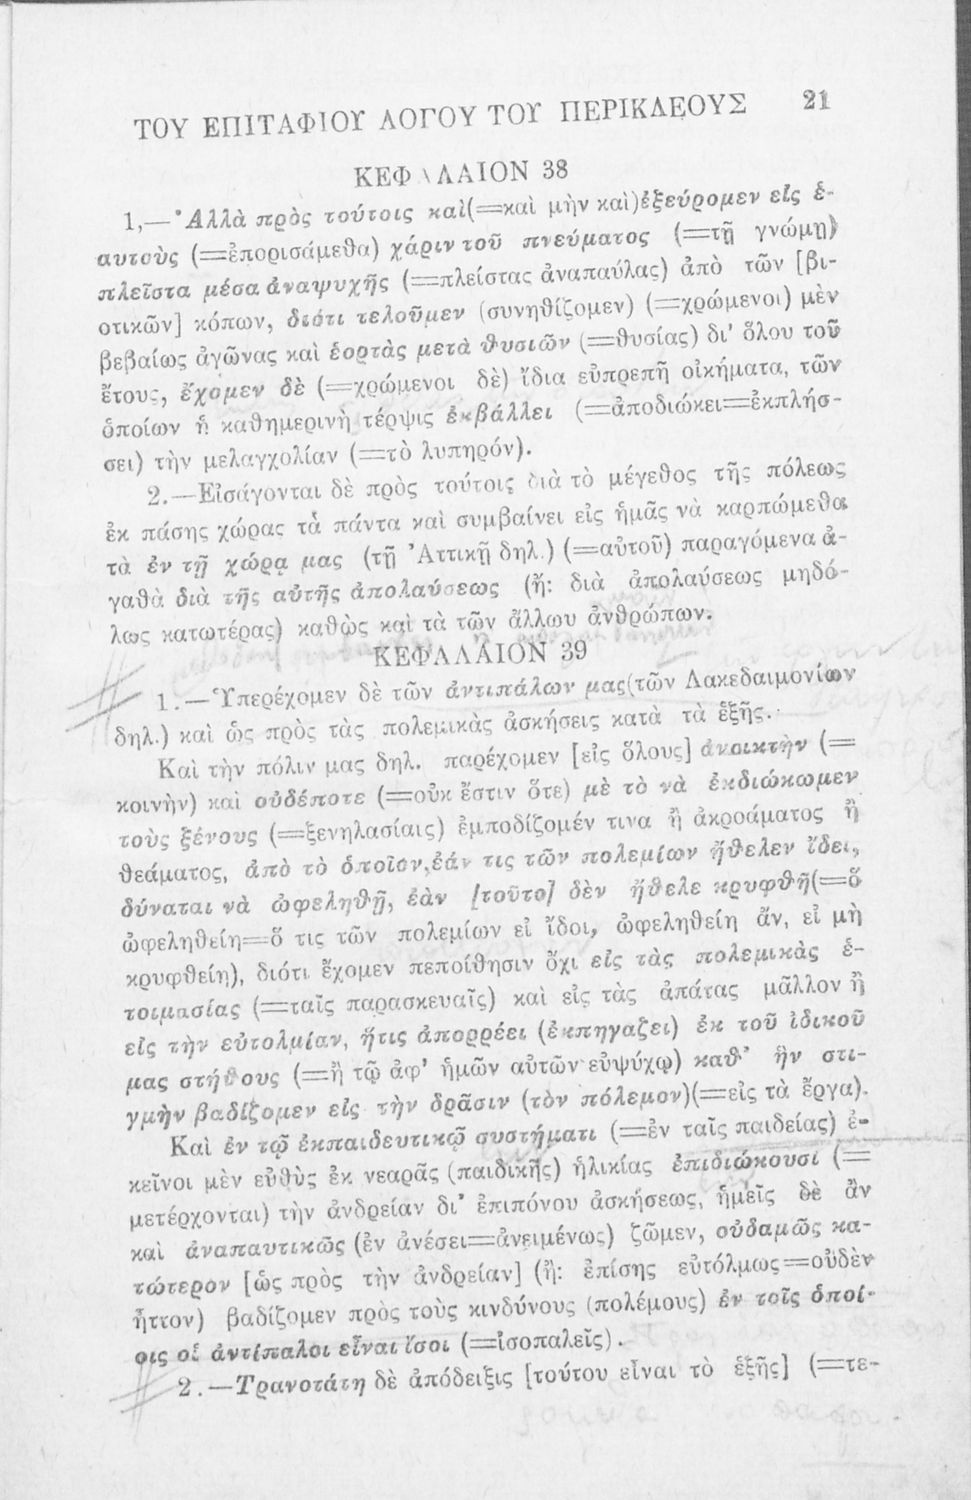 ΤΟΥ ΕΠΙΤΑΦΙΟΥ ΛΟΓΟΥ ΤΟΥ ΠΕΡΙΚΛΕΟΥΣ 21
ΚΕΦΑΛΑΙΟΝ 38
1,—Ἀλλὰ πρὸς τούτοις καὶ(=καὶ μὴν καὶ)ἐξεύρομεν εἰς ἑ-
αυτοὺς (=ἐπορισάμεθα) χάριν τοῦ πνεύματος (=τῇ γνώμῃ)
πλεῖστα μέσα ἀναψυχῆς (=πλείστας ἀναπαύλας) ἀπὸ τῶν [βι-
οτικῶν] κόπων, διότι τελοῦμεν (συνηθίζομεν) (=χρώμενοι) μὲν
βεβαίως ἀγῶνας καὶ ἑορτὰς μετὰ θυσιῶν (=θυσίας) δι' ὅλου τοῦ
ἔτους, ἔχομεν δὲ (=χρώμενοι δὲ) ἴδια εὐπρεπῆ οἰκήματα, τῶν
ὁποίων ἡ καθημερινὴ τέρψις ἐκβάλλει (=ἀποδιώκει=ἐκπλήσ-
σει) τὴν μελαγχολίαν (=τὸ λυπηρόν).
2.—Εἰσάγονται δὲ πρὸς τούτοις διὰ τὸ μέγεθος τῆς πόλεως
ἐκ πάσης χώρας τὰ πάντα καὶ συμβαίνει εἰς ἡμᾶς νὰ καρπώμεθα
τὰ ἐν τῇ χώρᾳ μας (τῇ Ἀττικῇ δηλ.) (=αὐτοῦ) παραγόμενα ἀ-
γαθὰ διὰ τῆς αὐτῆς ἀπολαύσεως (ἤ: διὰ ἀπολαύσεως μηδό-
λως κατωτέρας) καθὼς καὶ τὰ τῶν ἄλλων ἀνθρώπων.
ΚΕΦΑΛΑΙΟΝ 39
1.—Ὑπερέχομεν δὲ τῶν ἀντιπάλων μας(τῶν Λακεδαιμονίων
δηλ.) καὶ ὡς πρὸς τὰς πολεμικὰς ἀσκήσεις κατὰ τὰ ἑξῆς.
Καὶ τὴν πόλιν μας δηλ. παρέχομεν [εἰς ὅλους] ἀνοικτὴν (=
κοινὴν) καὶ οὐδέποτε (=οὐκ ἔστιν ὅτε) μὲ τὸ νὰ ἐκδιώκωμεν
τοὺς ξένους (=ξενηλασίαις) ἐμποδίζομέν τινα ἢ ἀκροάματος ἢ
θεάματος, ἀπὸ τὸ ὁποῖον,ἐάν τις τῶν πολεμίων ἤθελεν ἴδει,
δύναται νὰ ὠφεληθῇ, ἐὰν [τοῦτο] δὲν ἤθελε κρυφθῆ(=ὃ
ὠφεληθείη=ὅ τις τῶν πολεμίων εἰ ἴδοι, ὠφεληθείη ἄν, εἰ μὴ
κρυφθείη), διότι ἔχομεν πεποίθησιν ὄχι εἰς τὰς πολεμικὰς ἑ-
τοιμασίας (=ταῖς παρασκευαῖς) καὶ εἰς τὰς ἀπάτας μᾶλλον ἢ
εἰς τὴν εὐτολμίαν, ἥτις ἀπορρέει (ἐκπηγάζει) ἐκ τοῦ ἰδικοῦ
μας στήθους (=ἢ τῷ ἀφ' ἡμῶν αὐτῶν εὐψύχῳ) καθ' ἣν στι-
γμὴν βαδίζομεν εἰς τὴν δρᾶσιν (τὸν πόλεμον)(=εἰς τὰ ἔργα).
Καὶ ἐν τῷ ἐκπαιδευτικῷ συστήματι (=ἐν ταῖς παιδείας) ἐ-
κεῖνοι μὲν εὐθὺς ἐκ νεαρᾶς (παιδικῆς) ἡλικίας ἐπιδιώκουσι (=
μετέρχονται) τὴν ἀνδρείαν δι' ἐπιπόνου ἀσκήσεως, ἡμεῖς δὲ ἂν
καὶ ἀναπαυτικῶς (ἐν ἀνέσει=ἀνειμένως) ζῶμεν, οὐδαμῶς κα-
τώτερον [ὡς πρὸς τὴν ἀνδρείαν] (ἤ: ἐπίσης εὐτόλμως=οὐδὲν
ἧττον) βαδίζομεν πρὸς τοὺς κινδύνους (πολέμους) ἐν τοῖς ὁποί-
οις οἱ ἀντίπαλοι εἶναι ἴσοι (=ἰσοπαλεῖς).
2.—Τρανοτάτη δὲ ἀπόδειξις [τούτου εἶναι τὸ ἑξῆς] (=τε-